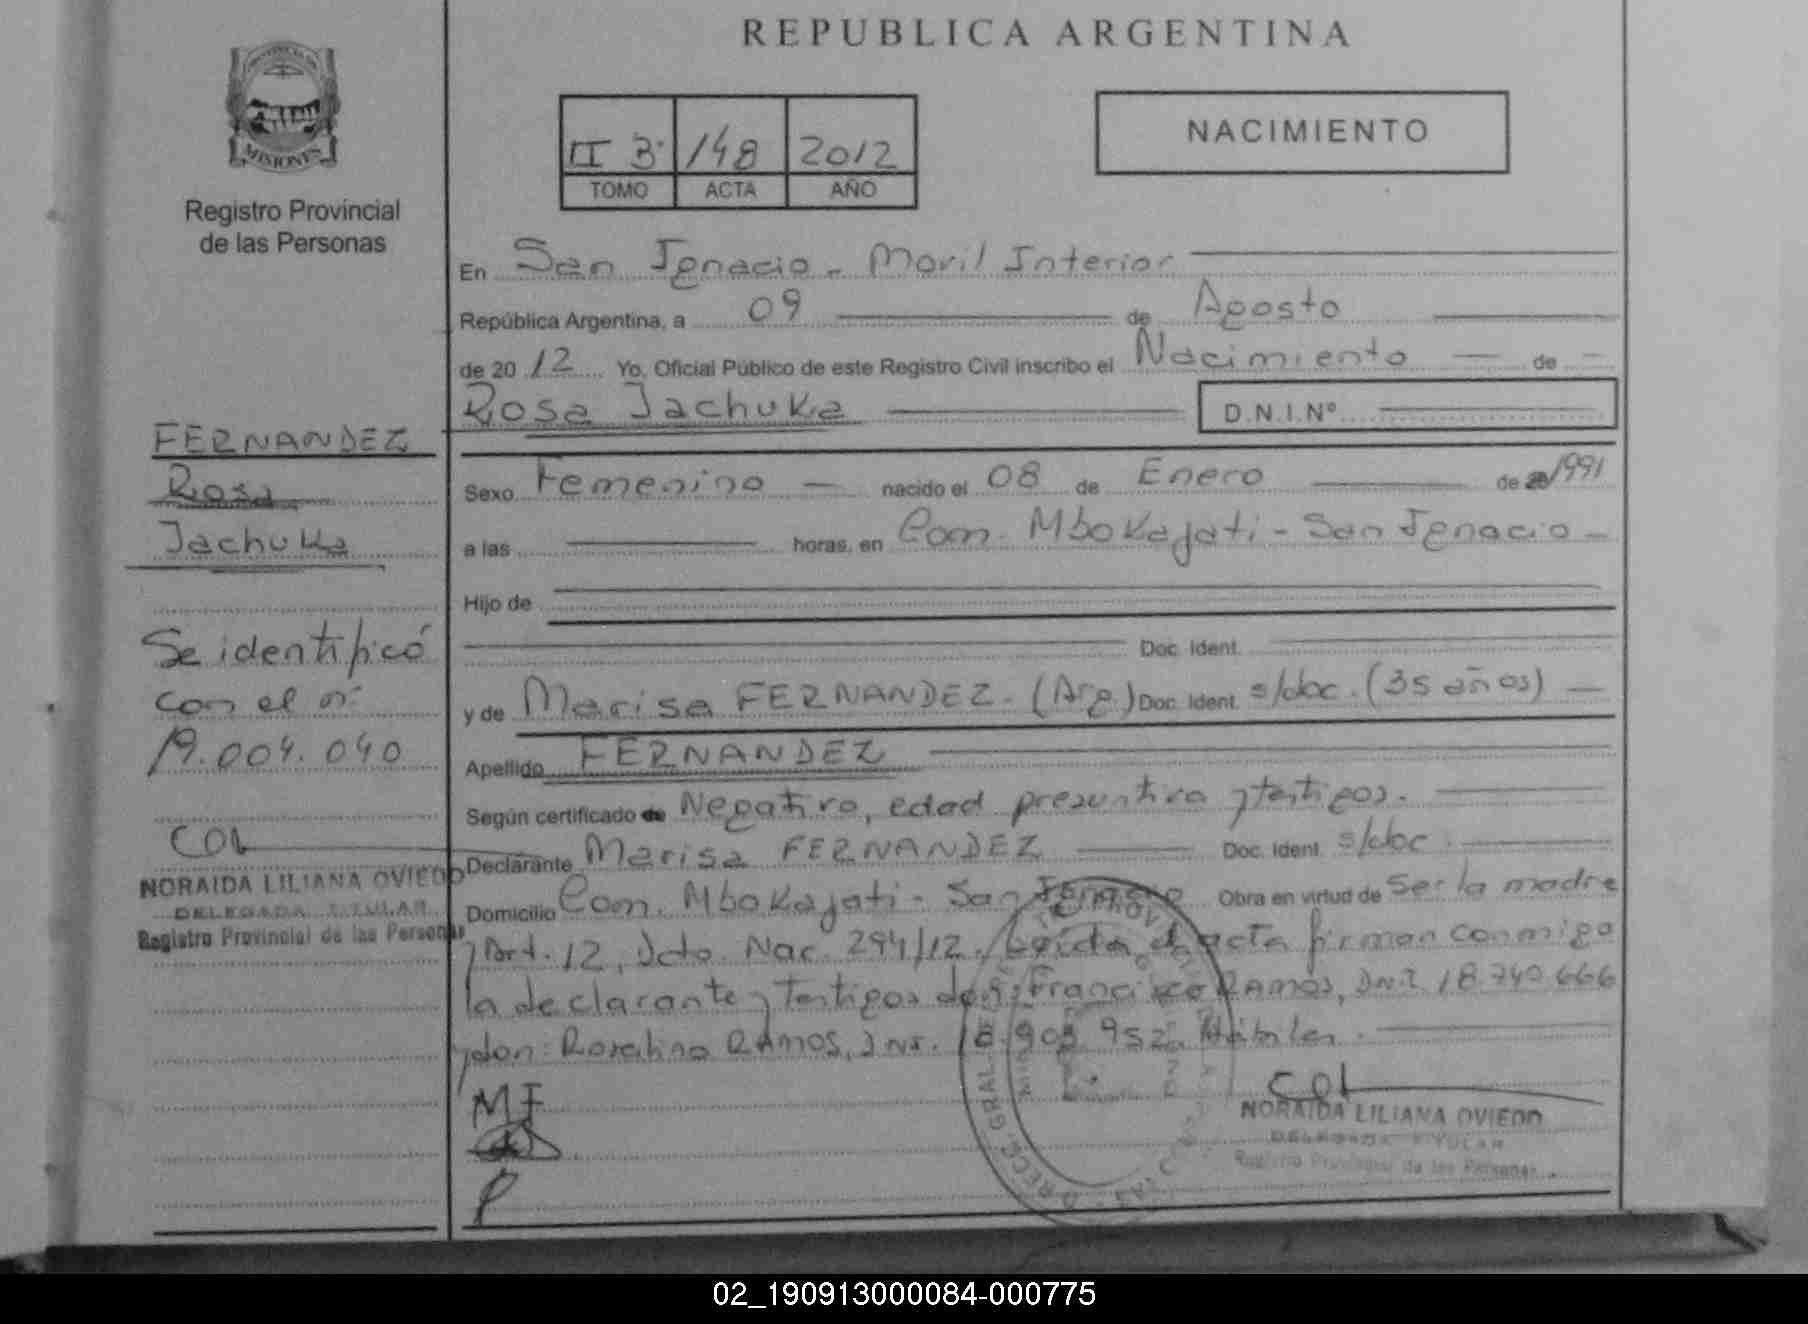 REPUBLICA ARGENTINA
MISIONES
Registro Provincial
de las Personas
II B 148 2012
TOMO ACTA AÑO
NACIMIENTO
En San Ignacio - Movil Interior
República Argentina, a 09 de Agosto
de 20 12 Yo, Oficial Público de este Registro Civil inscribo el Nacimiento de
Rosa Jachuka D.N.I.Nº
FERNANDEZ
Rosa
Jachuka
Sexo Femenino nacido el 08 de Enero de 1991
a las horas, en Com. Mbokajati - San Ignacio -
Hijo de
Doc. Ident.
Se identificó
con el nº
19.004.040
y de Marisa FERNANDEZ. (Arg.) Doc. Ident. s/doc. (35 años)
Apellido FERNANDEZ
Según certificado de Negativo, edad presuntiva y testigos.
Declarante Marisa FERNANDEZ Doc. Ident. s/doc.
NORAIDA LILIANA OVIEDO
DELEGADA TITULAR
Registro Provincial de las Personas
Domicilio Com. Mbokajati - San Ignacio Obra en virtud de Ser la madre
y Art. 12, Dcto. Nac. 294/12. Leída el acta firman conmigo
la declarante y testigos don: Francisco RAMOS, DNI. 18.740.666
y don: Rosalino RAMOS, DNI. 18.903.952. Hábiles.
MF
NORAIDA LILIANA OVIEDO
DELEGADA TITULAR
Registro Provincial de las Personas
02_190913000084-000775